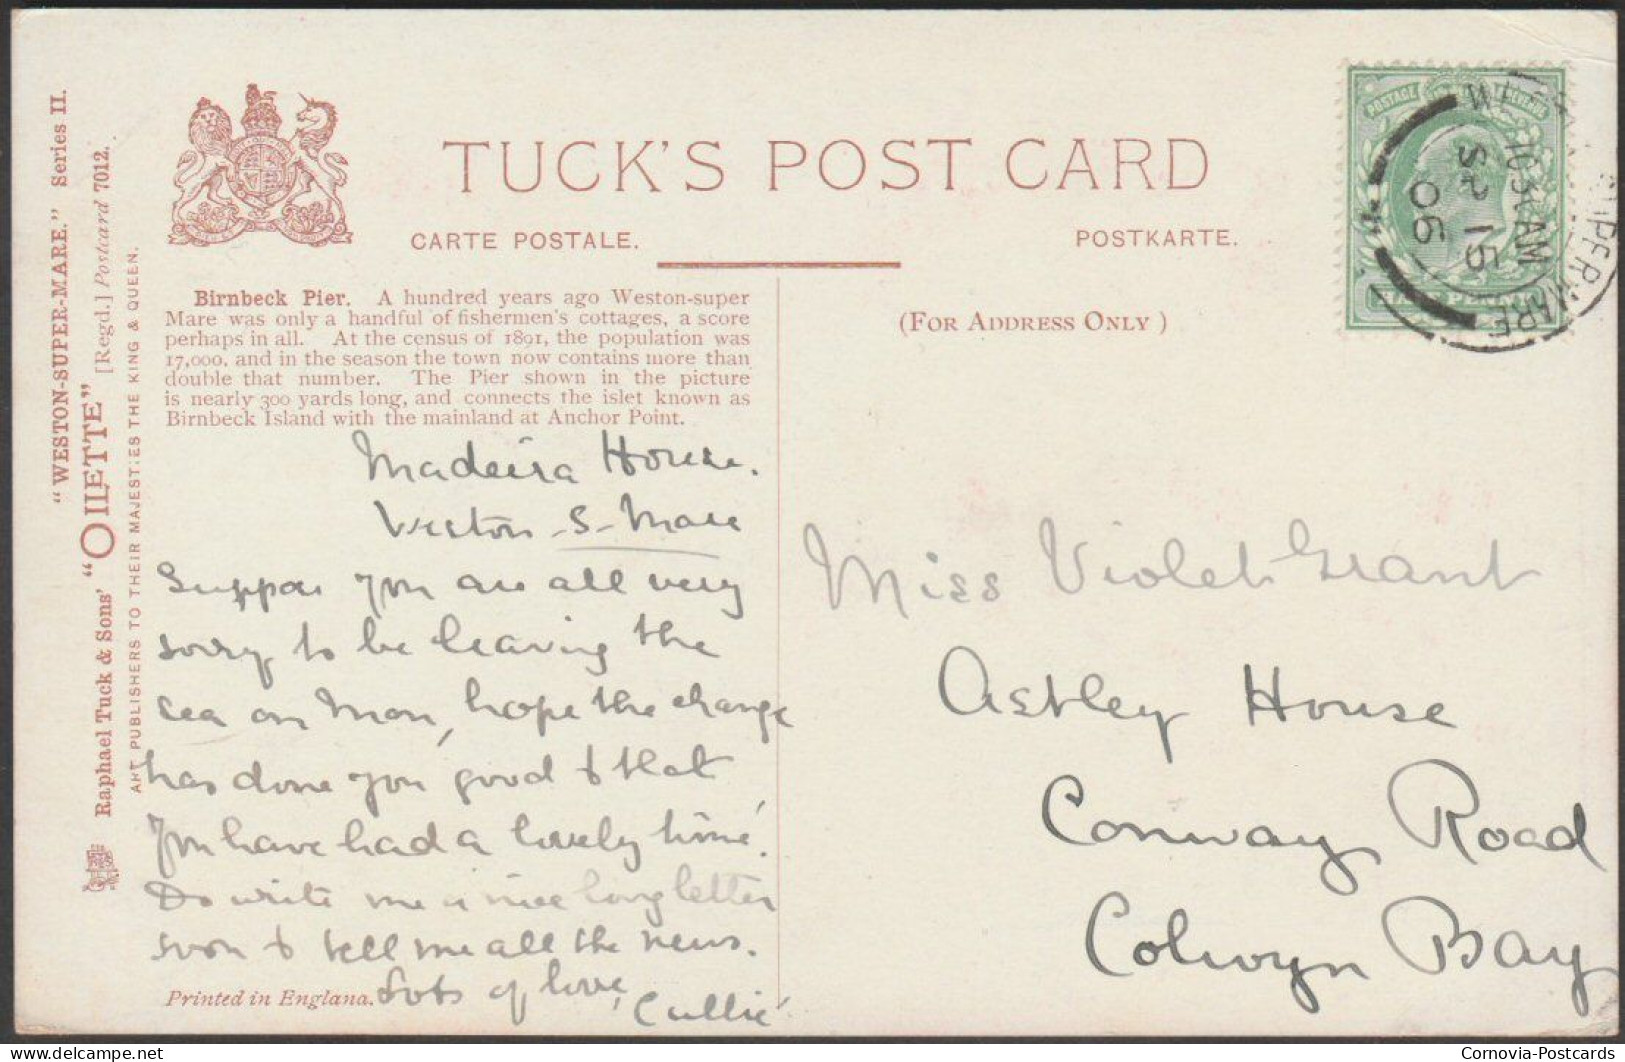 "WESTON-SUPER-MARE." Series II.
Raphael Tuck & Sons' "OILETTE" [Regd.] Postcard 7012.
ART PUBLISHERS TO THEIR MAJESTIES THE KING & QUEEN.
TUCK'S POST CARD
CARTE POSTALE.
POSTKARTE.
Birnbeck Pier. A hundred years ago Weston-super
Mare was only a handful of fishermen's cottages, a score
perhaps in all. At the census of 1891, the population was
17,000, and in the season the town now contains more than
double that number. The Pier shown in the picture
is nearly 300 yards long, and connects the islet known as
Birnbeck Island with the mainland at Anchor Point.
(FOR ADDRESS ONLY)
Madeira House.
Weston-S-Mare
Suppose you are all very
sorry to be leaving the
sea on Mon, hope the change
has done you good & that
you have had a lovely time.
Do write me a nice long letter
soon & tell me all the news.
Lots of love,
Printed in England.
Miss Violet Grant
Astley House
Conway Road
Colwyn Bay
POSTAGE
10.30 AM
SP 15
06
SUPER MARE
Cornovia-Postcards
delcampe.net